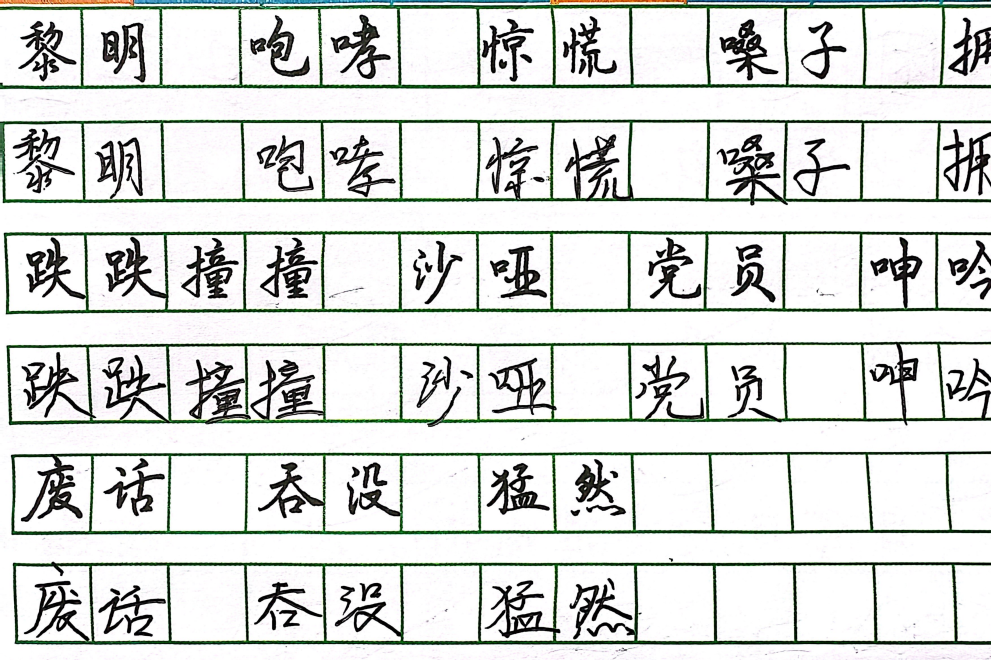 黎明 咆哮 惊慌 嗓子 拥
黎明 咆哮 惊慌 嗓子 拥
跌跌撞撞 沙哑 党员 呻吟
跌跌撞撞 沙哑 党员 呻吟
废话 吞没 猛然
废话 吞没 猛然